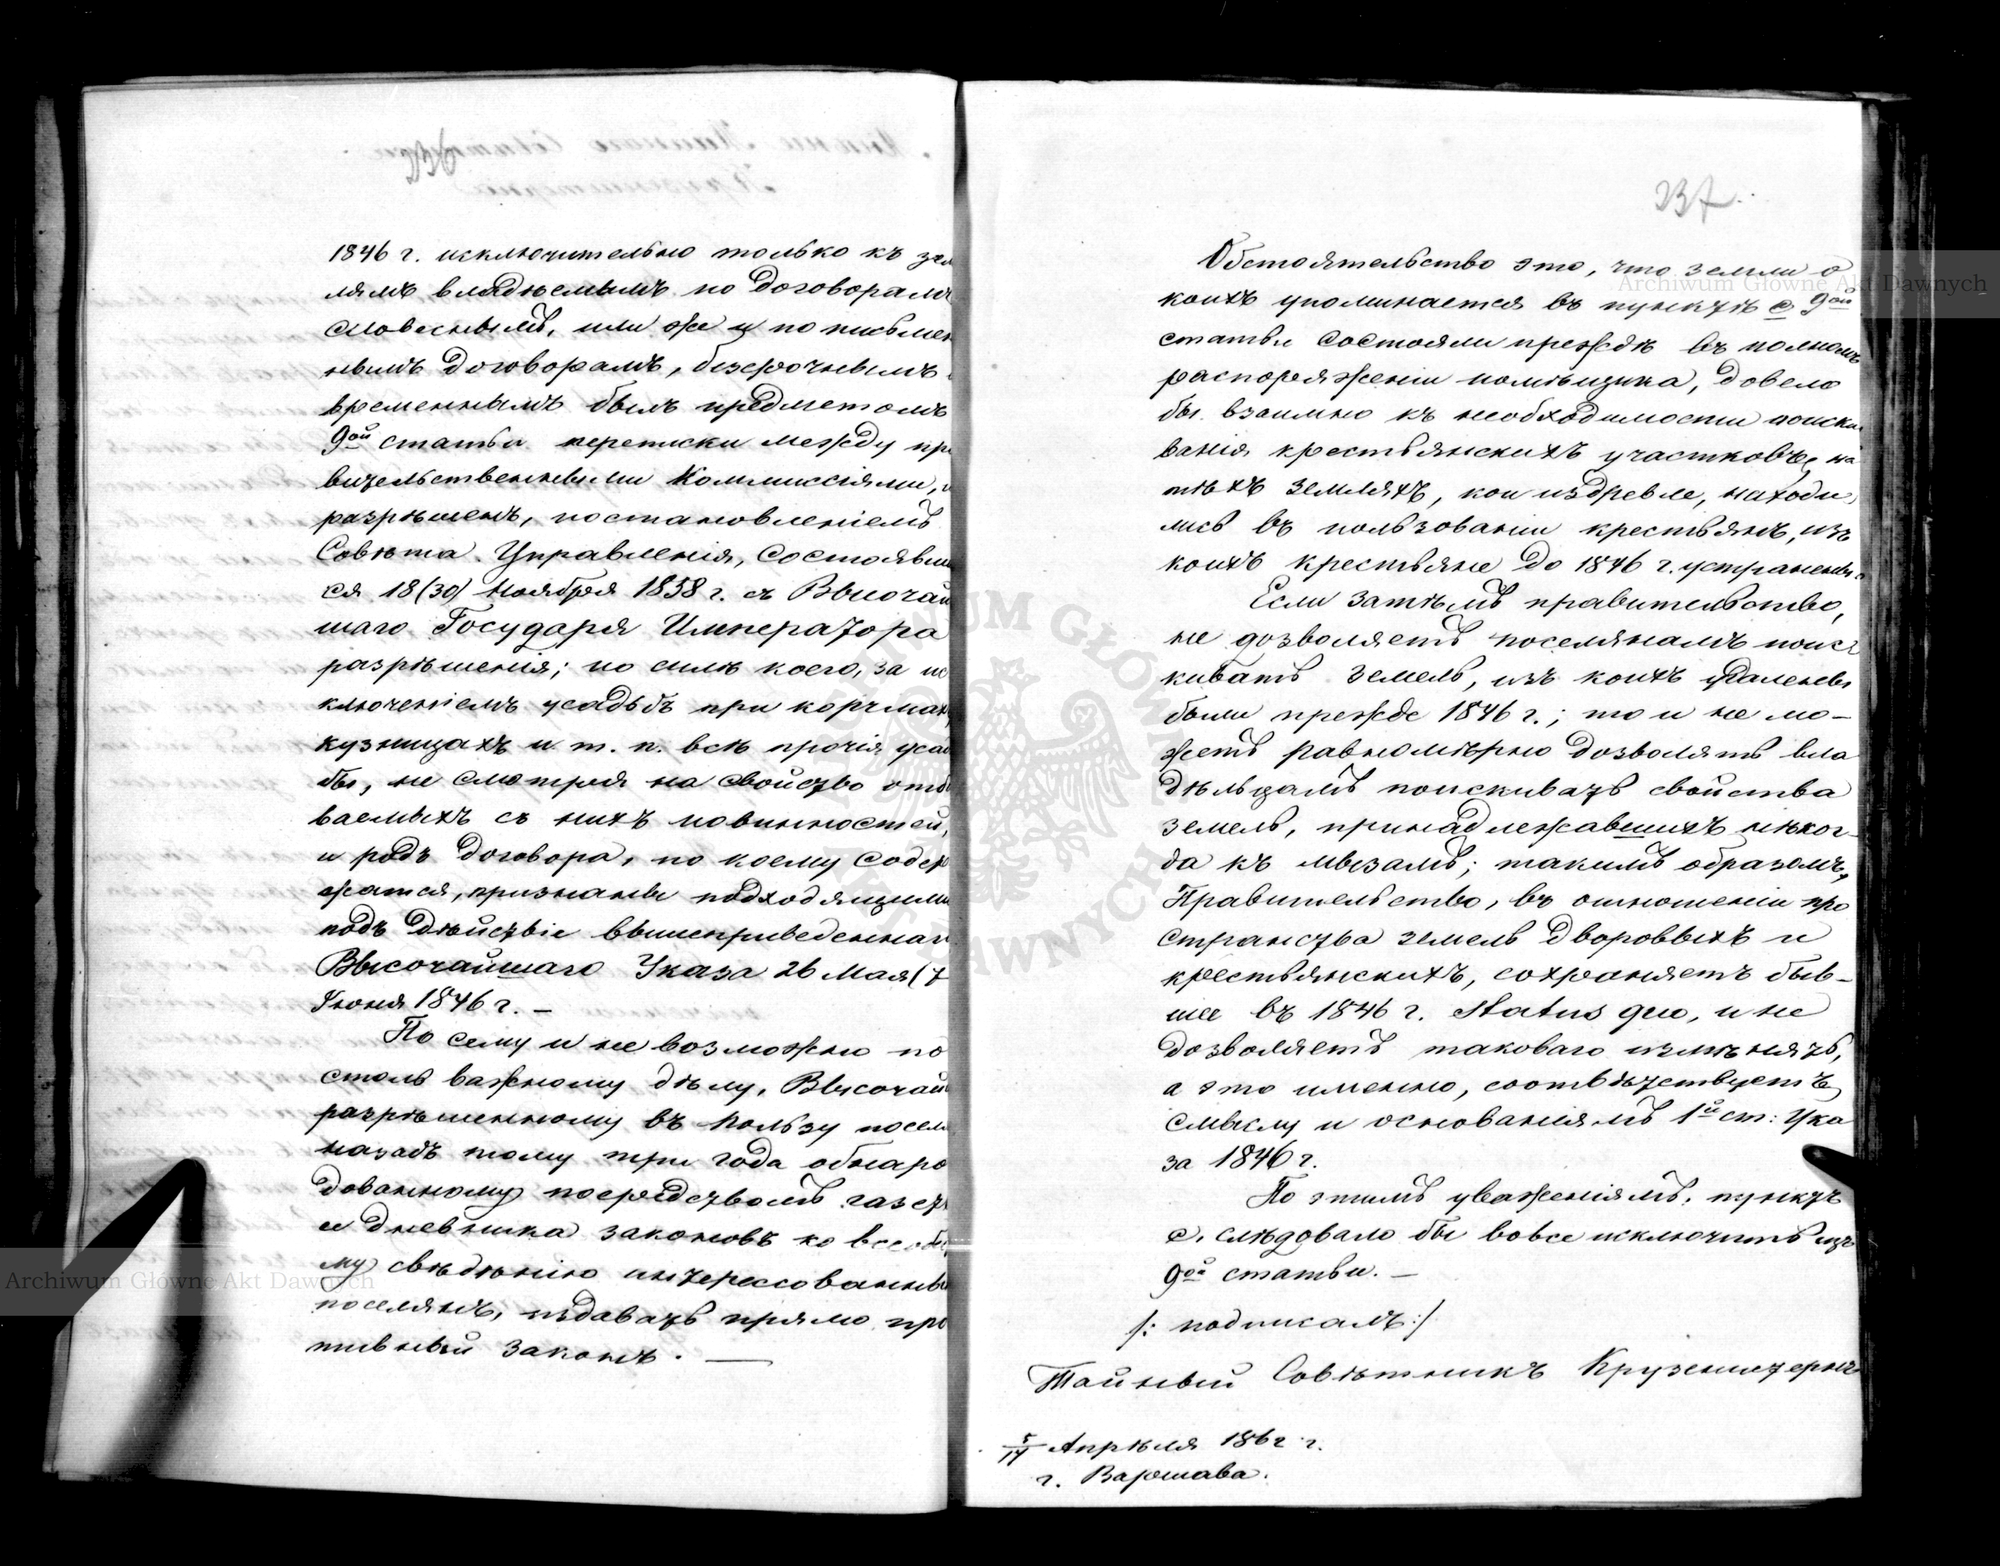 1846 г. исключительно только къ зем
лямъ владѣемымъ по договорамъ
словеснымъ, или же и по письмен
нымъ договорамъ, безсрочнымъ
временнымъ былъ предметомъ
9ой статьи переписки между пра
вительственными Коммиссіями, и
разрѣшенъ, постановленіемъ
Совѣта Управленія, состоявши
ся 18 (30) Ноября 1858 г. съ Высочай
шаго Государя Императора
разрѣшенія; по силѣ коего, за ис
ключеніемъ усадьбъ при корчмахъ
кузницахъ и т. п. всѣ прочія усадь
бы, не смотря на свойство отбы
ваемыхъ съ нихъ повинностей,
и родъ договора, по коему содер
жатся, признаны подходящими
подъ дѣйствіе вышеприведеннаго
Высочайшаго Указа 26 Мая (7
Іюня 1846 г. —
По сему и не возможно по
столь важному дѣлу, Высочайше
разрѣшенному въ пользу посел
назадъ тому три года обнаро
дованному посредствомъ газетъ
и дневника законовъ ко всеоб
му свѣдѣнію интерессованныхъ
поселянъ, издавать прямо про
тивный законъ. —
237.
Обстоятельство это, что земли о
коихъ упоминается въ пунктѣ с 9ой
статьи состояли прежде въ полномъ
распоряженіи помѣщика, довело
бы взаимно къ необходимости поиски
ванія крестьянскихъ участковъ, на
тѣхъ земляхъ, кои издревле, находи
лись въ пользованіи крестьянъ, изъ
коихъ крестьяне до 1846 г. устранены
Если затѣмъ правительство,
не дозволяетъ поселянамъ поис
кивать земель, изъ коихъ удалены
были прежде 1846 г.; то и не мо-
жетъ равномѣрно дозволять вла
дѣльцамъ поискивать свойства
земель, принадлежавшихъ нѣког-
да къ мызамъ; такимъ образомъ,
Правительство, въ отношеніи про
странства земель дворовыхъ и
крестьянскихъ, сохраняетъ быв-
шее въ 1846 г. Status quo, и не
дозволяетъ таковаго измѣнять,
а это именно, соотвѣтствуетъ
смыслу и основаніямъ 1й ст: Ука
за 1846 г.
По этимъ уваженіямъ, пунктъ
с. слѣдовало бы вовсе исключить изъ
9ой статьи. —
/: подписалъ :/
Тайный Совѣтникъ Крузенштернъ
5/17 Апрѣля 1862 г.
г. Варшава.
Archiwum Główne Akt Dawnych
Archiwum Główne Akt Dawnych